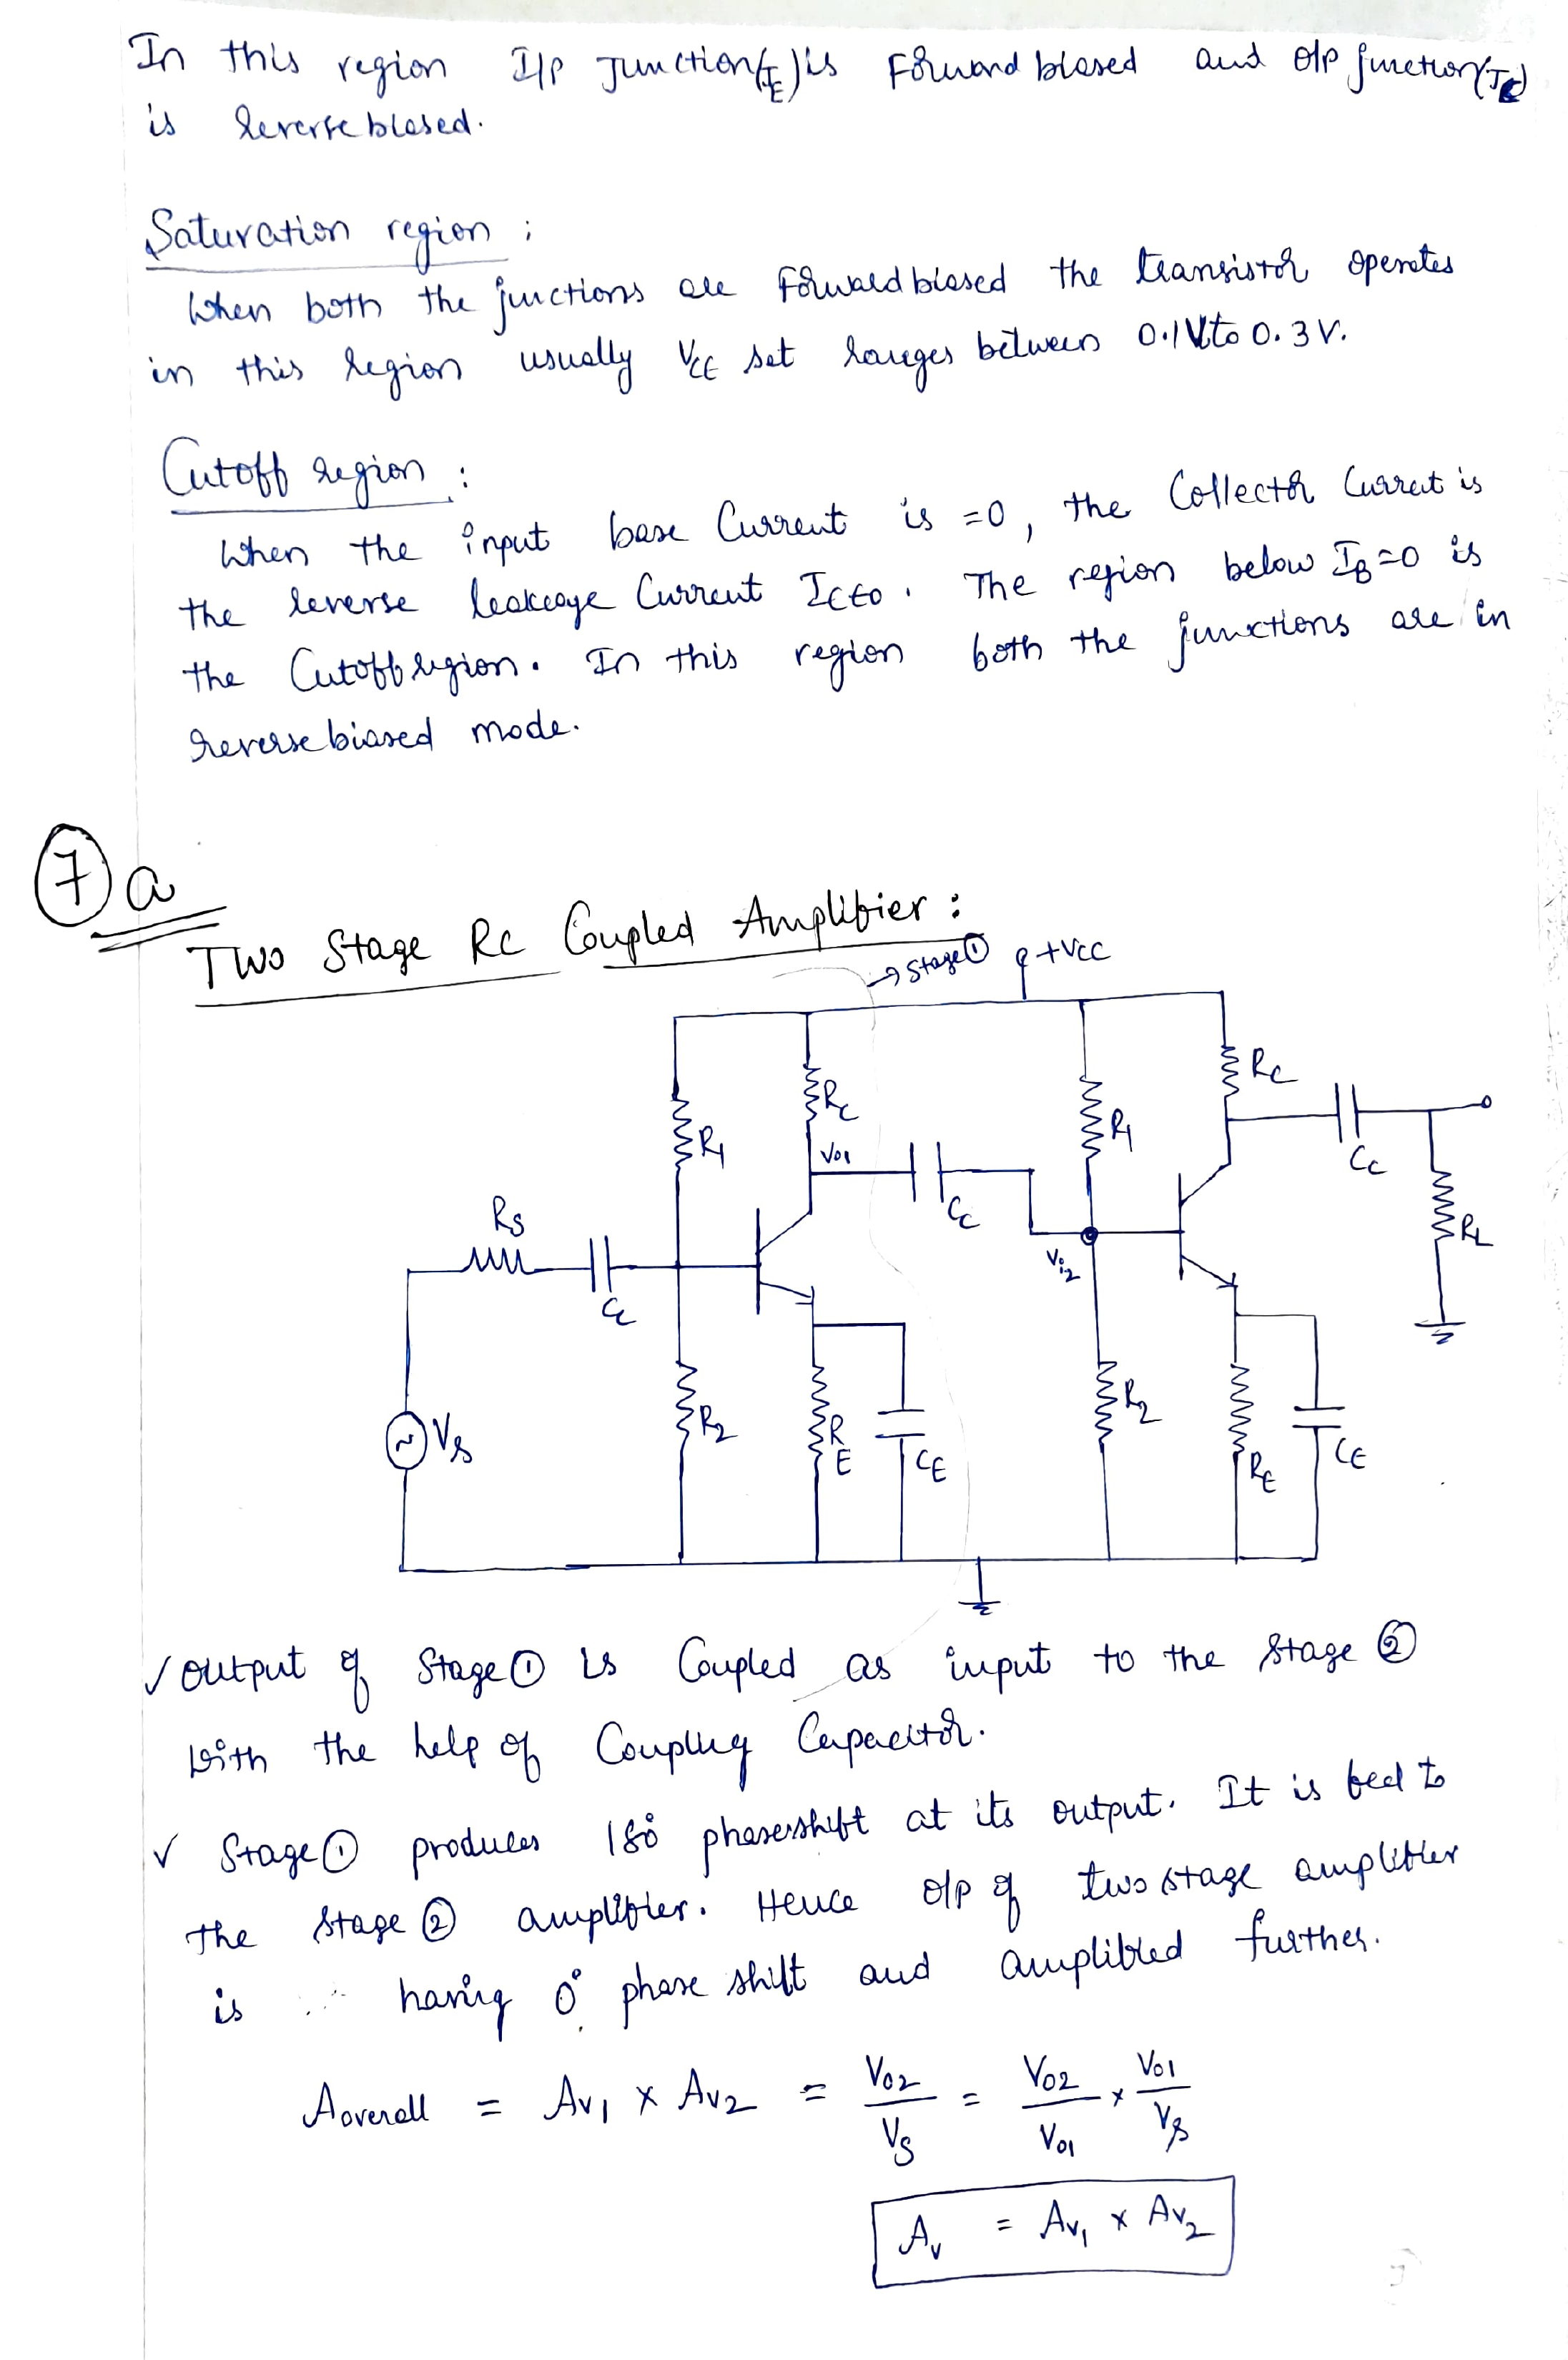 In this region I/P Junction(JE) is Forward biased and O/p junction(JC)
is reverse biased.
Saturation region :
When both the junctions are Forward biased the transistor operates
in this region usually VCE sat ranges between 0.1V to 0.3 V.
Cutoff region :
When the input base Current is =0, the Collector Current is
the reverse leakage Current ICEO. The region below IB=0 is
the Cutoff region. In this region both the junctions are in
reverse biased mode.
7 a
Two Stage RC Coupled Amplifier :
→ Stage ① +VCC
RC
RC
R1
R1
Vo1
CC
CC
RS
RL
Vi2
CC
R2
R2
VS
RE
CE
RE
CE
✓ Output of Stage ① is Coupled as input to the Stage ②
with the help of Coupling Capacitor.
✓ Stage ① produces 180° phase shift at its output. It is feed to
the Stage ② amplifier. Hence o/p of two stage amplifier
is having 0° phase shift and amplified further.
Aoverall = Av1 x Av2 = Vo2/VS = Vo2/Vo1 x Vo1/VS
Av = Av1 x Av2